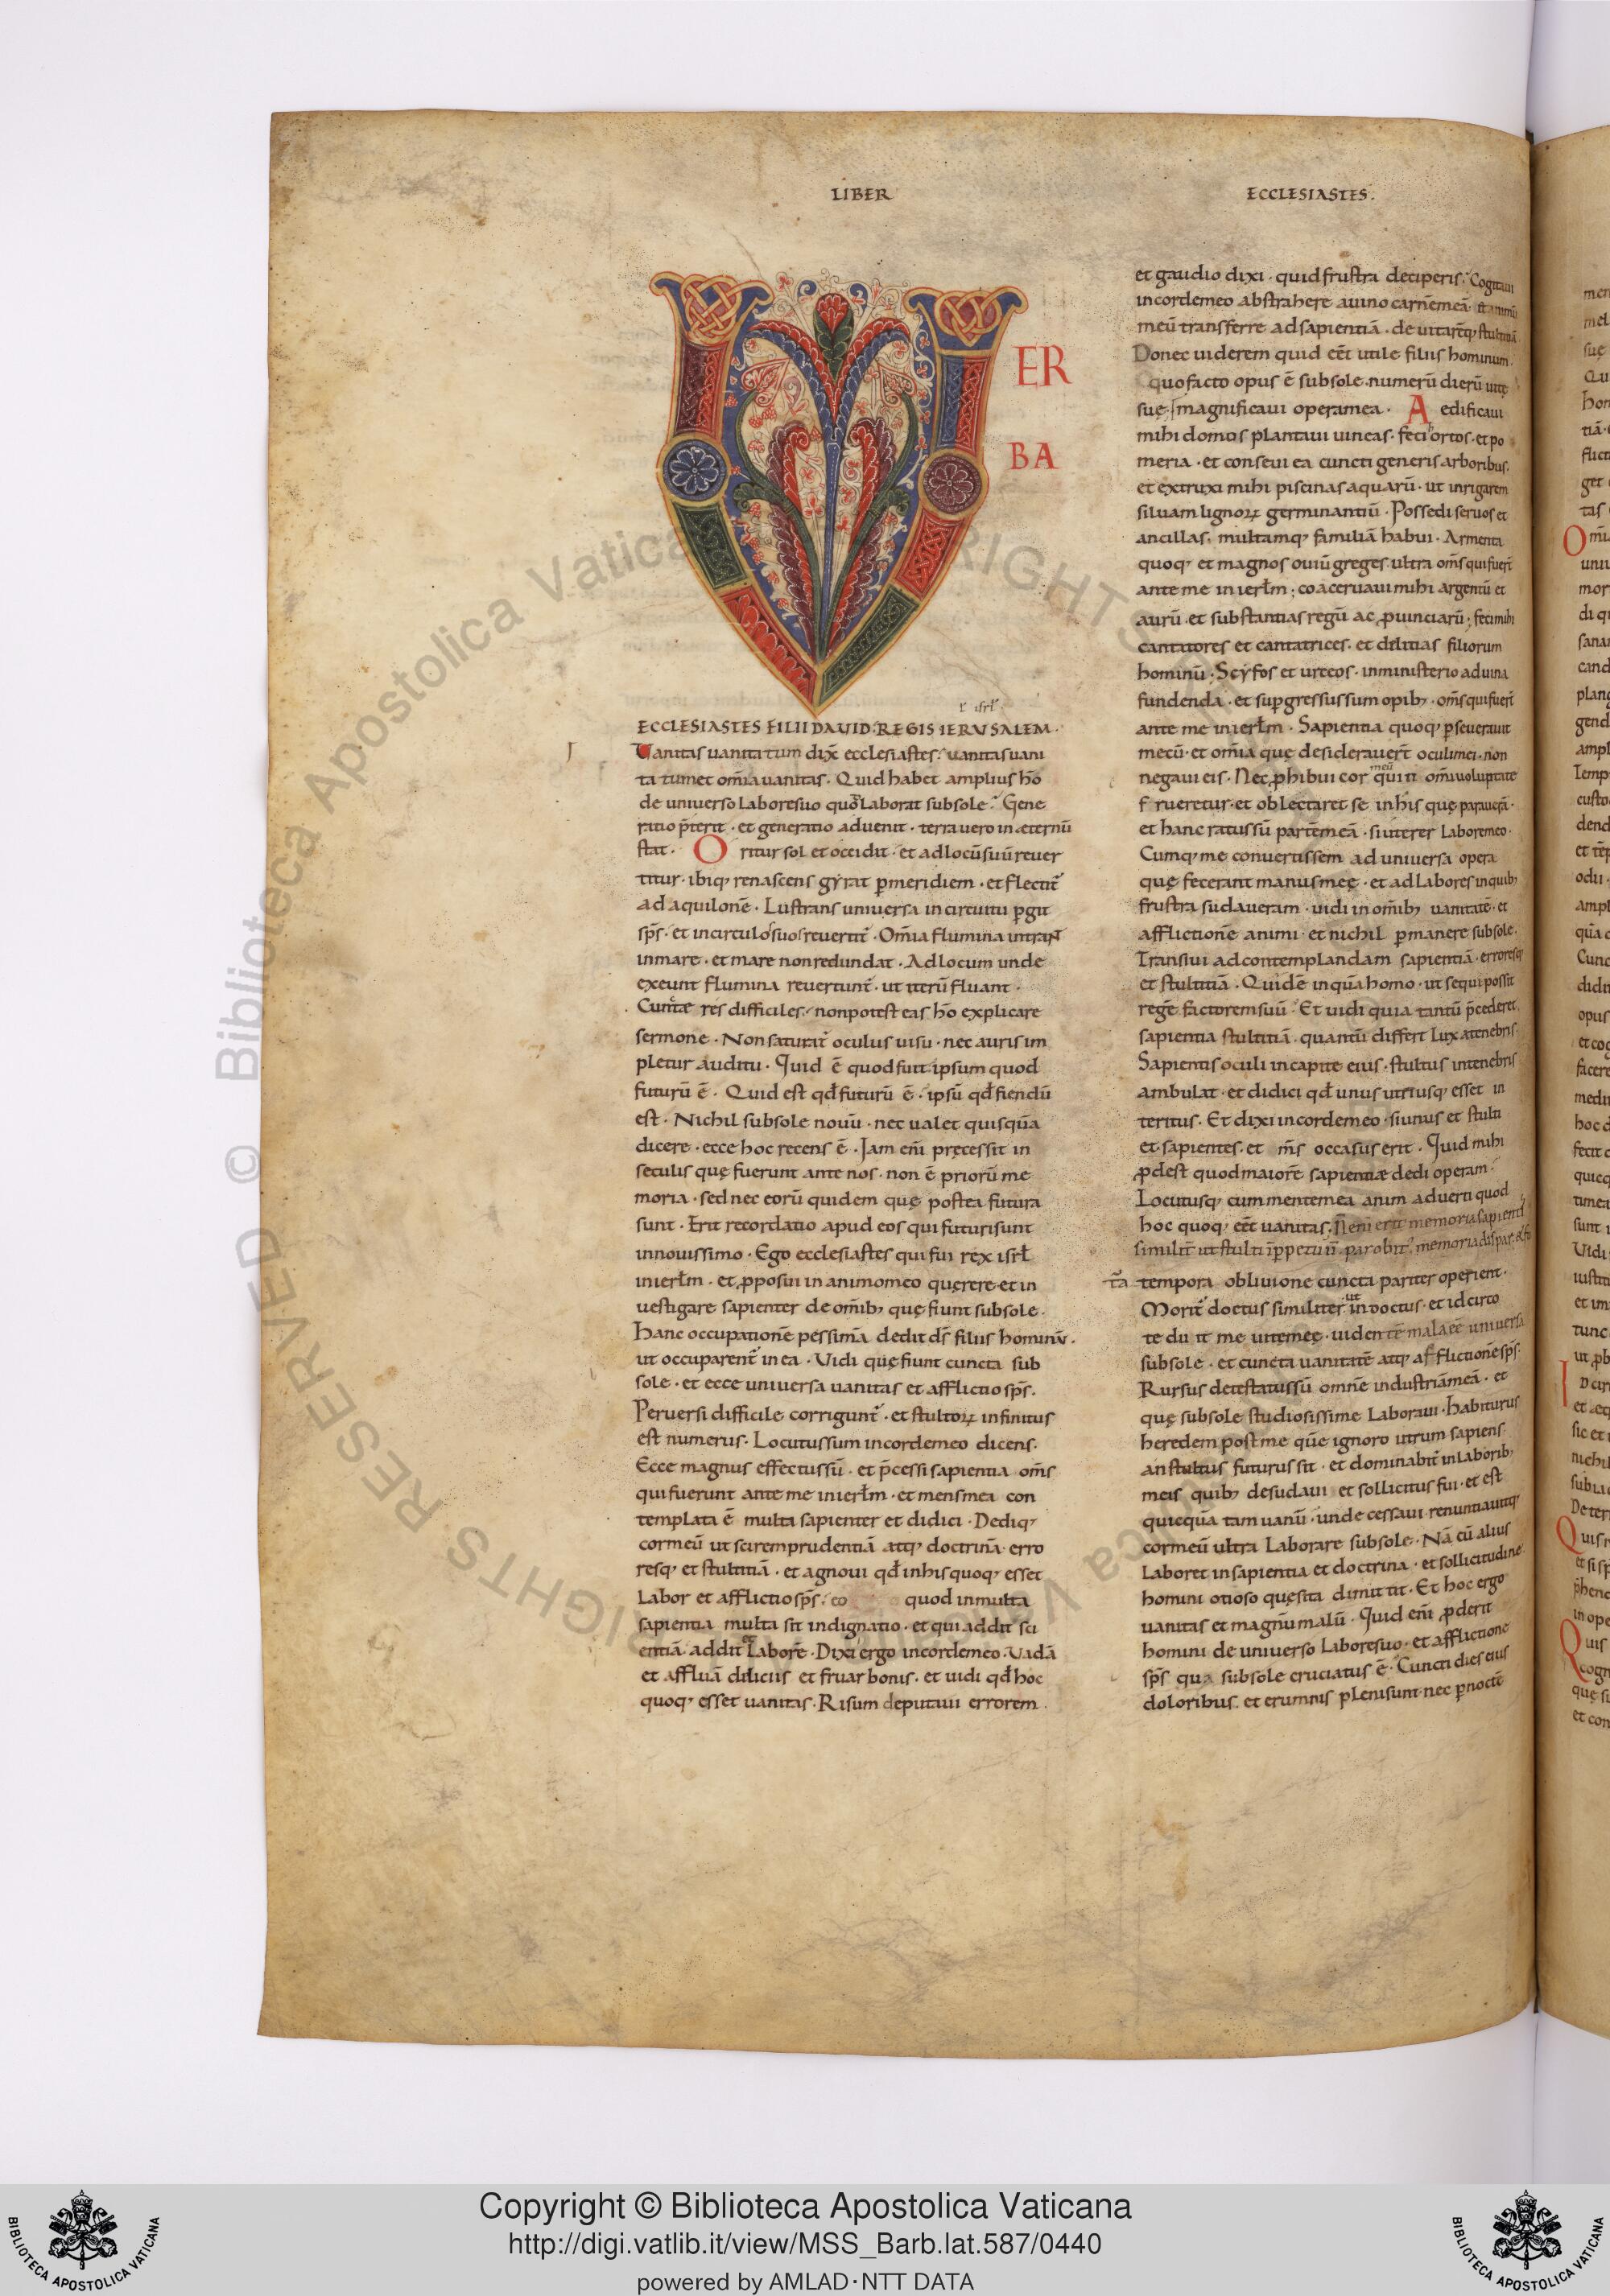 LIBER
ECCLESIASTES.
VERBA
ł isrł.
ECCLESIASTES FILII DAVID·REGIS IERVSALEM·
I
Vanitas uanitatum dix̄ ecclesiastes· uanitas uani
tatum et om̄ia uanitas· Quid habet amplius hō
de universo labore suo quo laborat sub sole· Gene
ratio p̄terit· et generatio aduenit· terra uero in æternū
stat· Oritur sol et occidit· et ad locū suū reuer
titur· ibiq; renascens gyrat p̱ meridiem· et flectit᷑
ad aquilonē· Lustrans uniuersa in circuitu p̱git
sp̄s· et in circulos suos reuertit᷑· Om̄ia flumina intrant
in mare· et mare non redundat· Ad locum unde
exeunt flumina reuertunt᷑· ut iterū fluant·
Cunctæ res difficiles· non potest eas hō explicare
sermone· Non saturat᷑ oculus uisu· nec auris im
pletur auditu· Quid ē quod fuit ipsum quod
futurū ē· Quid est qd̄ futurū ē· ipsū qd̄ fiendū
est· Nichil sub sole nouū· nec ualet quisquā
dicere· ecce hoc recens ē· Iam eni̅ pręcessit in
seculis quę fuerunt ante nos· non ē priorū me
moria· sed nec eorū quidem quę postea futura
sunt· Erit recordatio apud eos qui futuri sunt
in nouissimo· Ego ecclesiastes qui fui rex isrł
in ierłm· et ꝓposui in animo meo quęrere et in
uestigare sapienter de om̄ib; quę fiunt sub sole·
Hanc occupationē pessimā dedit ds̄ filiis hominū·
ut occuparent᷑ in ea· Uidi quę fiunt cuncta sub
sole· et ecce uniuersa uanitas et afflictio sp̄s·
Peruersi difficile corrigunt᷑· et stultoꝝ infinitus
est numerus· Locutus sum in corde meo dicens·
Ecce magnus effectus sū· et p̄cessi sapientia om̄s
qui fuerunt ante me in ierłm· et mens mea con
templata ē multa sapienter et didici· Dediq;
cor meū ut scirem prudentiā atq; doctrinā· erro
resq; et stultitiā· et agnoui qd̄ in his quoq; esset
labor et afflictio sp̄s· eo quod in multa
sapientia multa sit indignatio· et qui addit sci
entiā addit et laborē· Dixi ergo in corde meo· Uadā
et affluā diliciis et fruar bonis· et uidi qd̄ hoc
quoq; esset uanitas· Risum deputaui errorem·
et gaudio dixi· quid frustra deciperis· Cogitaui
in corde meo abstrahere a uino carnē meā·
meū transferre ad sapientiā· deuitarēq;
Donec uiderem quid eēt utile filiis hominum·
quo facto opus ē sub sole numerū dierū uitę
suę· magnificaui opera mea· Aedificaui
mihi domos plantaui uineas· feci hortos· et po
meria· et conseui ea cuncti generis arboribus·
et extruxi mihi piscinas aquarū· ut inrigarem
siluam lignoꝝ germinantiū· Possedi seruos et
ancillas· multamq; familiā habui· Armenta
quoq; et magnos ouiū greges· ultra om̄s qui fuer̄t
ante me in ierłm; coaceruaui mihi argentū et
aurū· et substantias regū ac ꝓuinciarū; feci mihi
cantatores et cantatrices· et dilitias filiorum
hominū· Scyfos et urceos· in ministerio ad uina
fundenda· et sup̱gressus sum opib; om̄s qui fuer̄t
ante me in ierłm· Sapientia quoq; p̱seuerauit
mecū· et om̄ia quę desiderauer̄t oculi mei· non
negaui eis· Nec ꝓhibui cor meū quin om̄i uoluptate
frueretur· et oblectaret se in his quę paraueră·
et hanc ratus sū partē meā· si uterer labore meo·
Cumq; me conuertissem ad uniuersa opera
quę fecerant manus meę· et ad labores in quib;
frustra sudaueram· uidi in om̄ib; uanitatē· et
afflictionē animi· et nichil p̱manere sub sole·
Transiui ad contemplandam sapientiā· erroresq;
et stultitiā· Quid ē inquā homo· ut sequi possit
regē factorem suū· Et uidi quia tantū p̄cederet
sapientia stultitiā· quantū differt lux a tenebris·
Sapientis oculi in capite eius· stultus in tenebris
ambulat· et didici qd̄ unus utriusq; esset in
teritus· Et dixi in corde meo· si unus et stulti
et sapientes· et m̄s occasus erit· Quid mihi
ꝓdest quod maiorē sapientiæ dedi operam·
Locutusq; cum mente mea animaduerti quod
hoc quoq; eēt uanitas· n̄ eni̅ erit memoria sapienti
similit᷑ ut stulti
tempora obliuione cuncta pariter operient·
Morit᷑ doctus similiter ut indoctus· et idcirco
tedu it me uitę meę· uidentē mala eē uniuersa
sub sole· et cuncta uanitatē atq; afflictionē sp̄s·
Rursus detestatus sū omnē industriā meā· et
quę sub sole studiosissime laboraui· habiturus
heredem post me quē ignoro utrum sapiens
an stultus futurus sit· et dominabit᷑ in laborib;
meis quib; desudaui et sollicitus fui· et est
quicquā tam uanū· unde cessaui renuntiauitq;
cor meū ultra laborare sub sole· Nā cū alius
laboret in sapientia et doctrina· et sollicitudine
homini otioso quęsita dimittit· Et hoc ergo
uanitas et magnū malū· Quid eni̅ ꝓderit
homini de uniuerso labore suo· et afflictione
sp̄s qua sub sole cruciatus ē· Cuncti dies eius
doloribus· et erumnis pleni sunt· nec p̱ noctē
Copyright © Biblioteca Apostolica Vaticana
http://digi.vatlib.it/view/MSS_Barb.lat.587/0440
powered by AMLAD·NTT DATA
BIBLIOTECA APOSTOLICA VATICANA
BIBLIOTECA APOSTOLICA VATICANA